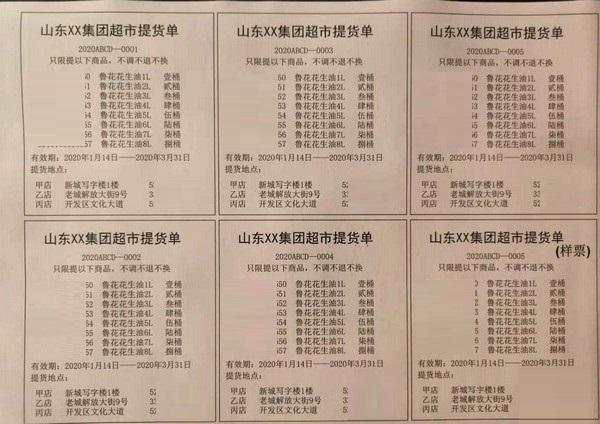 山东XX集团超市提货单
2020ABCD——0001
只限提以下商品，不调不退不换
50 鲁花花生油1L 壹桶
51 鲁花花生油2L 贰桶
52 鲁花花生油3L 叁桶
53 鲁花花生油4L 肆桶
54 鲁花花生油5L 伍桶
55 鲁花花生油6L 陆桶
56 鲁花花生油7L 柒桶
57 鲁花花生油8L 捌桶
有效期：2020年1月14日——2020年3月31日
提货地点：
甲店 新城写字楼1楼 5
乙店 老城解放大街9号 3
丙店 开发区文化大道 5
山东XX集团超市提货单
2020ABCD——0003
只限提以下商品，不调不退不换
50 鲁花花生油1L 壹桶
51 鲁花花生油2L 贰桶
52 鲁花花生油3L 叁桶
53 鲁花花生油4L 肆桶
54 鲁花花生油5L 伍桶
55 鲁花花生油6L 陆桶
56 鲁花花生油7L 柒桶
57 鲁花花生油8L 捌桶
有效期：2020年1月14日——2020年3月31日
提货地点：
甲店 新城写字楼1楼 52
乙店 老城解放大街9号 33
丙店 开发区文化大道 52
山东XX集团超市提货单
2020ABCD——0005
只限提以下商品，不调不退不换
50 鲁花花生油1L 壹桶
51 鲁花花生油2L 贰桶
52 鲁花花生油3L 叁桶
53 鲁花花生油4L 肆桶
54 鲁花花生油5L 伍桶
55 鲁花花生油6L 陆桶
56 鲁花花生油7L 柒桶
57 鲁花花生油8L 捌桶
有效期：2020年1月14日——2020年3月31日
提货地点：
甲店 新城写字楼1楼 52
乙店 老城解放大街9号 33
丙店 开发区文化大道 52
山东XX集团超市提货单
2020ABCD——0002
只限提以下商品，不调不退不换
50 鲁花花生油1L 壹桶
51 鲁花花生油2L 贰桶
52 鲁花花生油3L 叁桶
53 鲁花花生油4L 肆桶
54 鲁花花生油5L 伍桶
55 鲁花花生油6L 陆桶
56 鲁花花生油7L 柒桶
57 鲁花花生油8L 捌桶
有效期：2020年1月14日——2020年3月31日
提货地点：
甲店 新城写字楼1楼 52
乙店 老城解放大街9号 33
丙店 开发区文化大道 52
山东XX集团超市提货单
2020ABCD——0004
只限提以下商品，不调不退不换
50 鲁花花生油1L 壹桶
551 鲁花花生油2L 贰桶
52 鲁花花生油3L 叁桶
53 鲁花花生油4L 肆桶
54 鲁花花生油5L 伍桶
55 鲁花花生油6L 陆桶
56 鲁花花生油7L 柒桶
57 鲁花花生油8L 捌桶
有效期：2020年1月14日——2020年3月31日
提货地点：
甲店 新城写字楼1楼 52
乙店 老城解放大街9号 33
丙店 开发区文化大道 52
山东XX集团超市提货单
(样票)
2020ABCD——0005
只限提以下商品，不调不退不换
0 鲁花花生油1L 壹桶
1 鲁花花生油2L 贰桶
2 鲁花花生油3L 叁桶
3 鲁花花生油4L 肆桶
4 鲁花花生油5L 伍桶
5 鲁花花生油6L 陆桶
6 鲁花花生油7L 柒桶
7 鲁花花生油8L 捌桶
有效期：2020年1月14日——2020年3月31日
提货地点：
甲店 新城写字楼1楼
乙店 老城解放大街9号
丙店 开发区文化大道